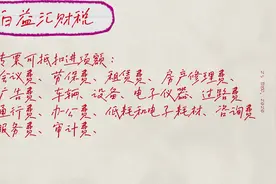 百益汇财税
专票可抵扣进项额:
会议费、劳保费、租赁费、房产修理费、
广告费、车辆、设备、电子仪器、过路费
通行费、办公费、低耗和电子耗材、咨询费
服务费、审计费、